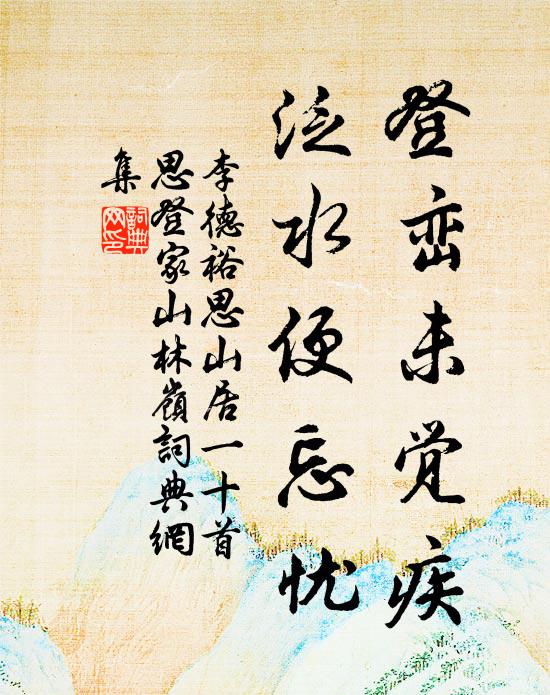 登峦未觉疾
泛水便忘忧
李德裕思山居一十首
思登家山林嶺詞典網
集
詞典
网印